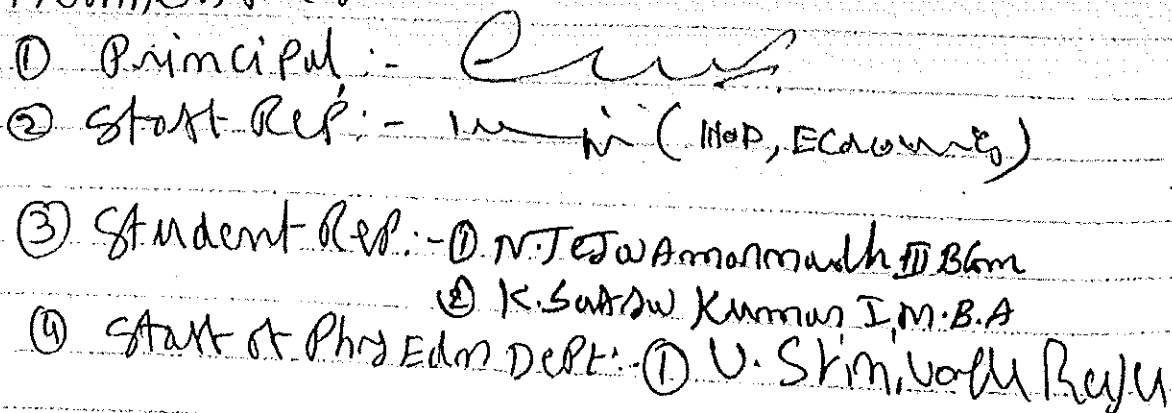 ① Principal :-
② Staff Rep :- (HOD, Economics)
③ Student Rep. :- ① N. Teja Amarnadh III BCom
② K. Kumar I, M.B.A
④ Staff of Phy Edn Dept :- ① V. Raju